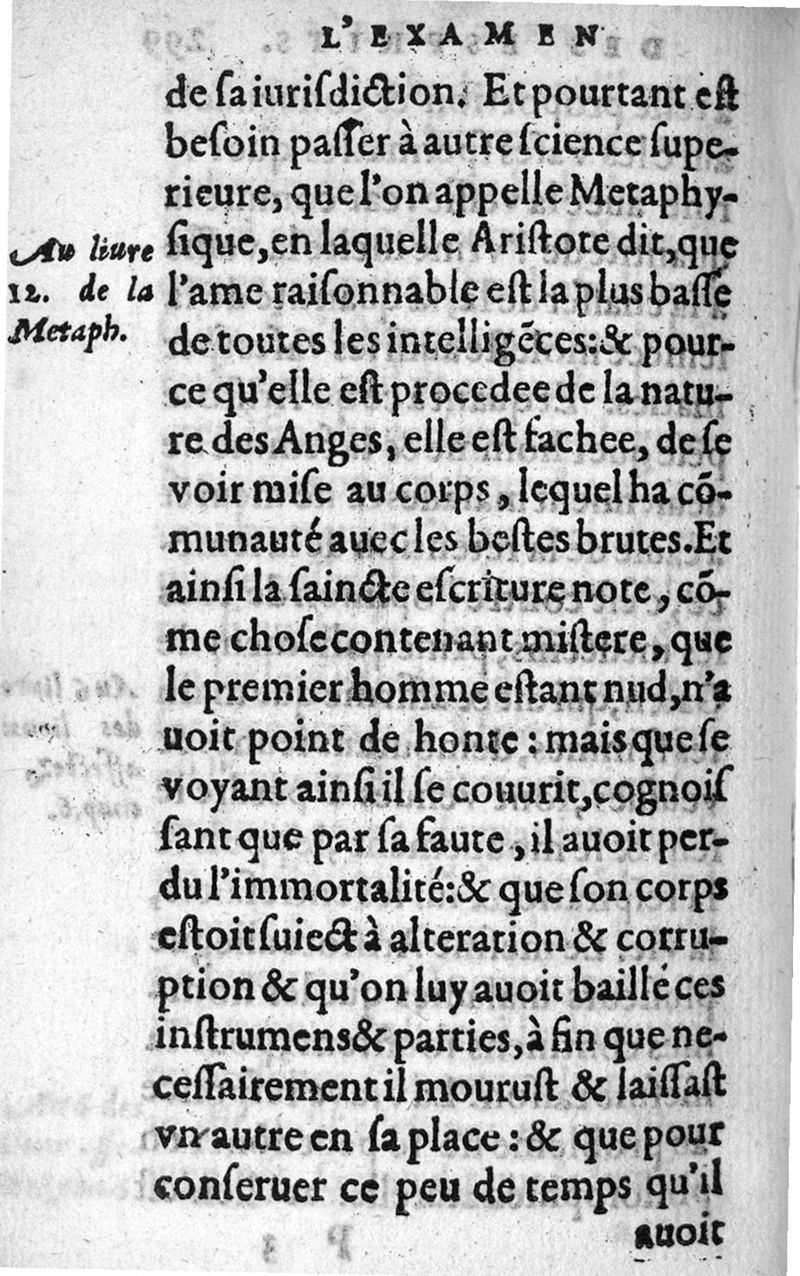 L'EXAMEN
de ſa iuriſdiction. Et pourtant eſt
beſoin paſſer à autre ſcience ſupe-
rieure, que l'on appelle Metaphy-
Au liure
12. de la
Metaph.
ſique, en laquelle Ariſtote dit, que
l'ame raiſonnable eſt la plus baſſe
de toutes les intelligẽces: & pour-
ce qu'elle eſt procedee de la natu-
re des Anges, elle eſt fachee, de ſe
voir miſe au corps, lequel ha cõ-
munauté auec les beſtes brutes. Et
ainſi la ſaincte eſcriture note, cõ-
me choſe contenant miſtere, que
le premier homme eſtant nud, n'a
uoit point de honte: mais que ſe
voyant ainſi il ſe couurit, cognoiſ
ſant que par ſa faute, il auoit per-
du l'immortalité: & que ſon corps
eſtoit ſuiect à alteration & corru-
ption & qu'on luy auoit baillé ces
inſtrumens & parties, à fin que ne-
ceſſairement il mouruſt & laiſſaſt
vn autre en ſa place: & que pour
conſeruer ce peu de temps qu'il
auoit